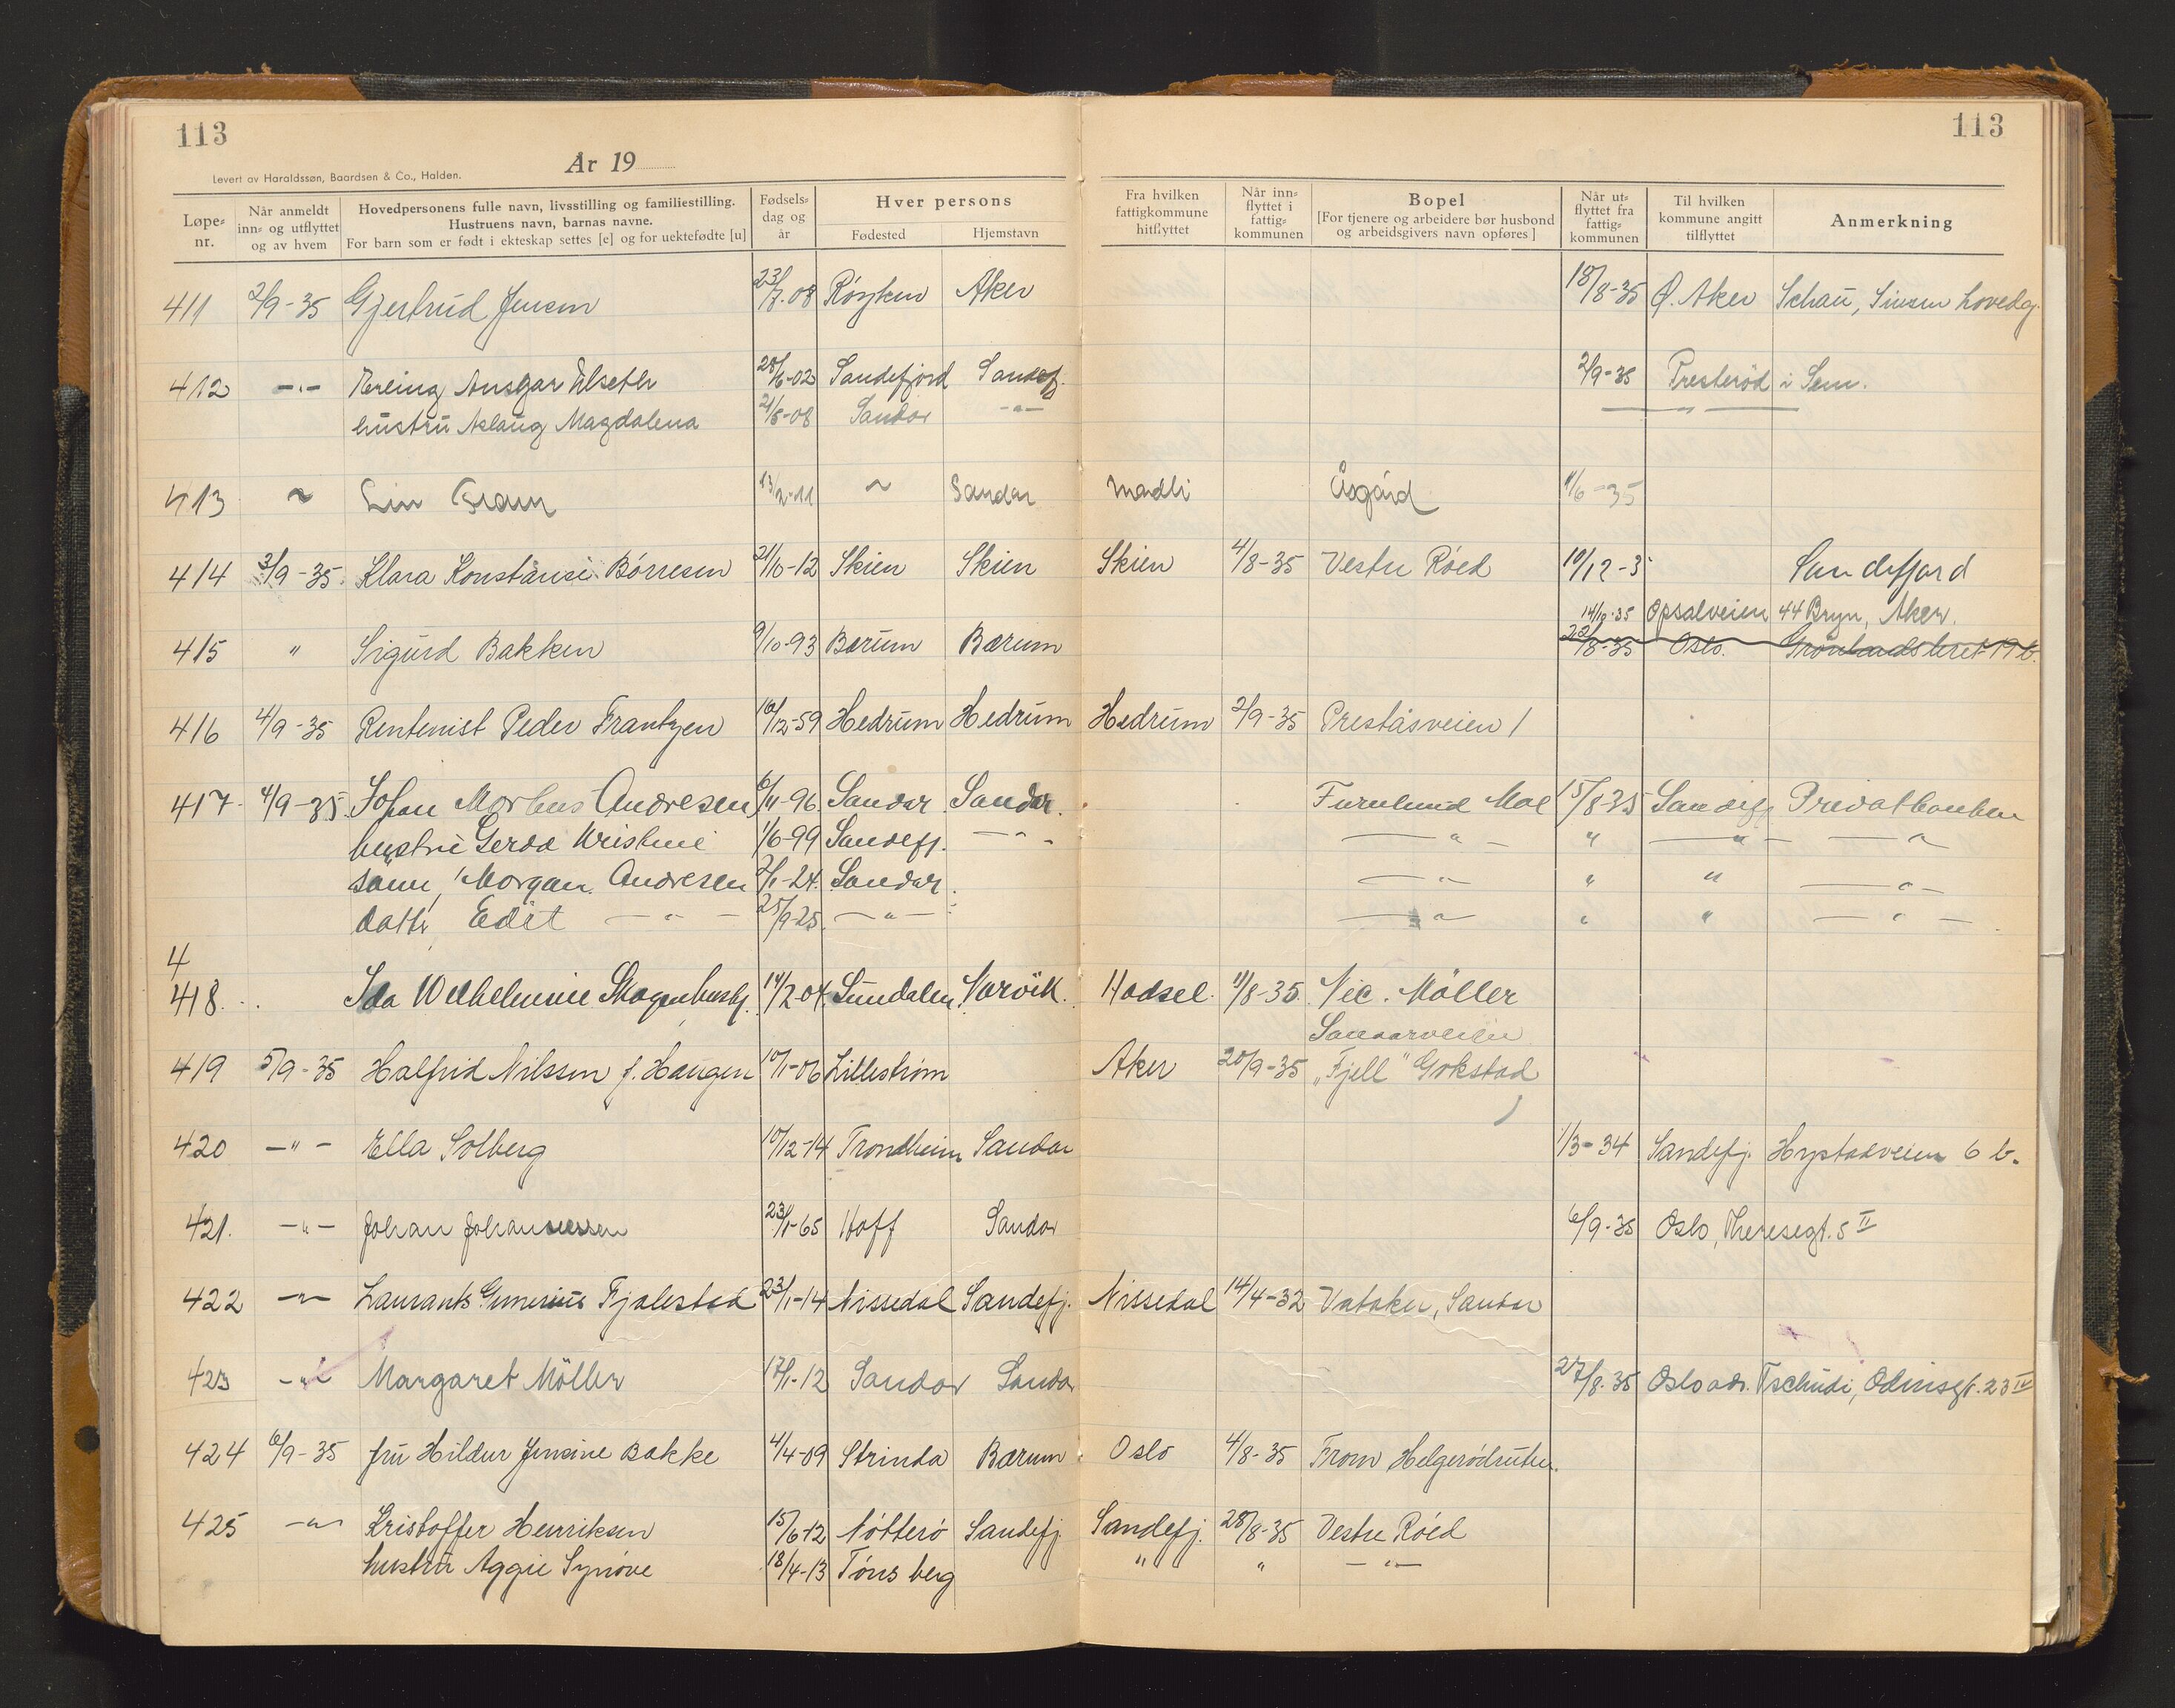 113
113
År 19
Levert av Haraldssøn, Baardsen & Co., Halden.
Løpe-nr. Når anmeldt inn- og utflyttet og av hvem Hovedpersonens fulle navn, livsstilling og familiestilling. Hustruens navn, barnas navne. For barn som er født i ekteskap settes [e] og for uektefødte [u] Fødselsdag og år Hver persons Fødested Hjemstavn Fra hvilken fattigkommune hitflyttet Når innflyttet i fattigkommunen Bopel [For tjenere og arbeidere bør husbond og arbeidsgivers navn opføres] Når utflyttet fra fattigkommunen Til hvilken kommune angitt tilflyttet Anmerkning
411 2/9-35 Gjertrud Jensen 23/7-08 Røyken Aker 18/8-35 Ø. Aker Schau, Sinsen hovedg.
412 -"- Erling Ansgar Ulseth 28/6-02 Sandefjord Sandef. 2/9-35 Presterød i Sem.
hustru Aslaug Magdalena 21/8-08 Sandar -"- -"-
413 ~ 13/2-11 ~ Sandar Madli Åsgård 1/6-35
414 3/9-35. Klara Konstanse Børresen 21/10-12 Skien Skien Skien 4/8-35 Vestre Røed 10/12-3 Sandefjord
14/10-35 Opsalveien 44 Bryn, Aker.
415 " Sigurd Bakken 9/10-93 Bærum Bærum 22/8-35 Oslo. Grønlandsleret 19 b.
416 4/9-35 Rentenist Peder Frantzen 10/12-59 Hedrum Hedrum Hedrum 2/9-35 Preståsveien 1
417. 4/9-35. Johan Morhus Andresen 6/11-96 Sandar Sandar. Furulund Moe 15/8-35 Sandefj Privatbanken
hustru Gerda Kristine 1/6-99 Sandefj. -"- -"- " -"- -"-
sønn, Morgan Andresen 2/1-24. Sandar. -"- " " -"-
dattr, Edit -"- 25/9-25. -"- -"- " " -"-
4
418. Ida Wilhelmine 14/2-04. Sundalen Narvik. Hadsel. 11/8-35. Nic. Møller
Sandarveien
419 5/9-35 Halfrid Nilssen f. Haugen 10/1-06 Lillestrøm Aker 20/9-35 "Fjell" Gokstad
420 -"- Ella Solberg 10/12-14 Trondheim Sandar 1/3-34 Sandefj. Hystadveien 6 b.
421. -"- Johan Johannessen 23/1-65 Hoff Sandar 6/9-35 Oslo, Theresegt. 5 II
422 -"- Laurants Gunerius Fjalestad 23/1-14 Nissedal Sandefj. Nissedal 14/4-32 Vataker, Sandar
423 -"- Margaret Möller 17/1-12 Sandar Sandar 27/8-35 Oslo adr. Tschudi, Odinsgt. 23 IV
424 6/9-35 fru Hildur Jensine Bakke 4/4-09 Strinda Bærum Oslo 4/8-35 From Helgerødruten.
425 -"- Kristoffer Henriksen 15/6-12 Nøtterø Sandefj Sandefj. 28/8-35 Vestre Røed
hustru Aggie Synøve 18/4-13 Tønsberg " " -"-